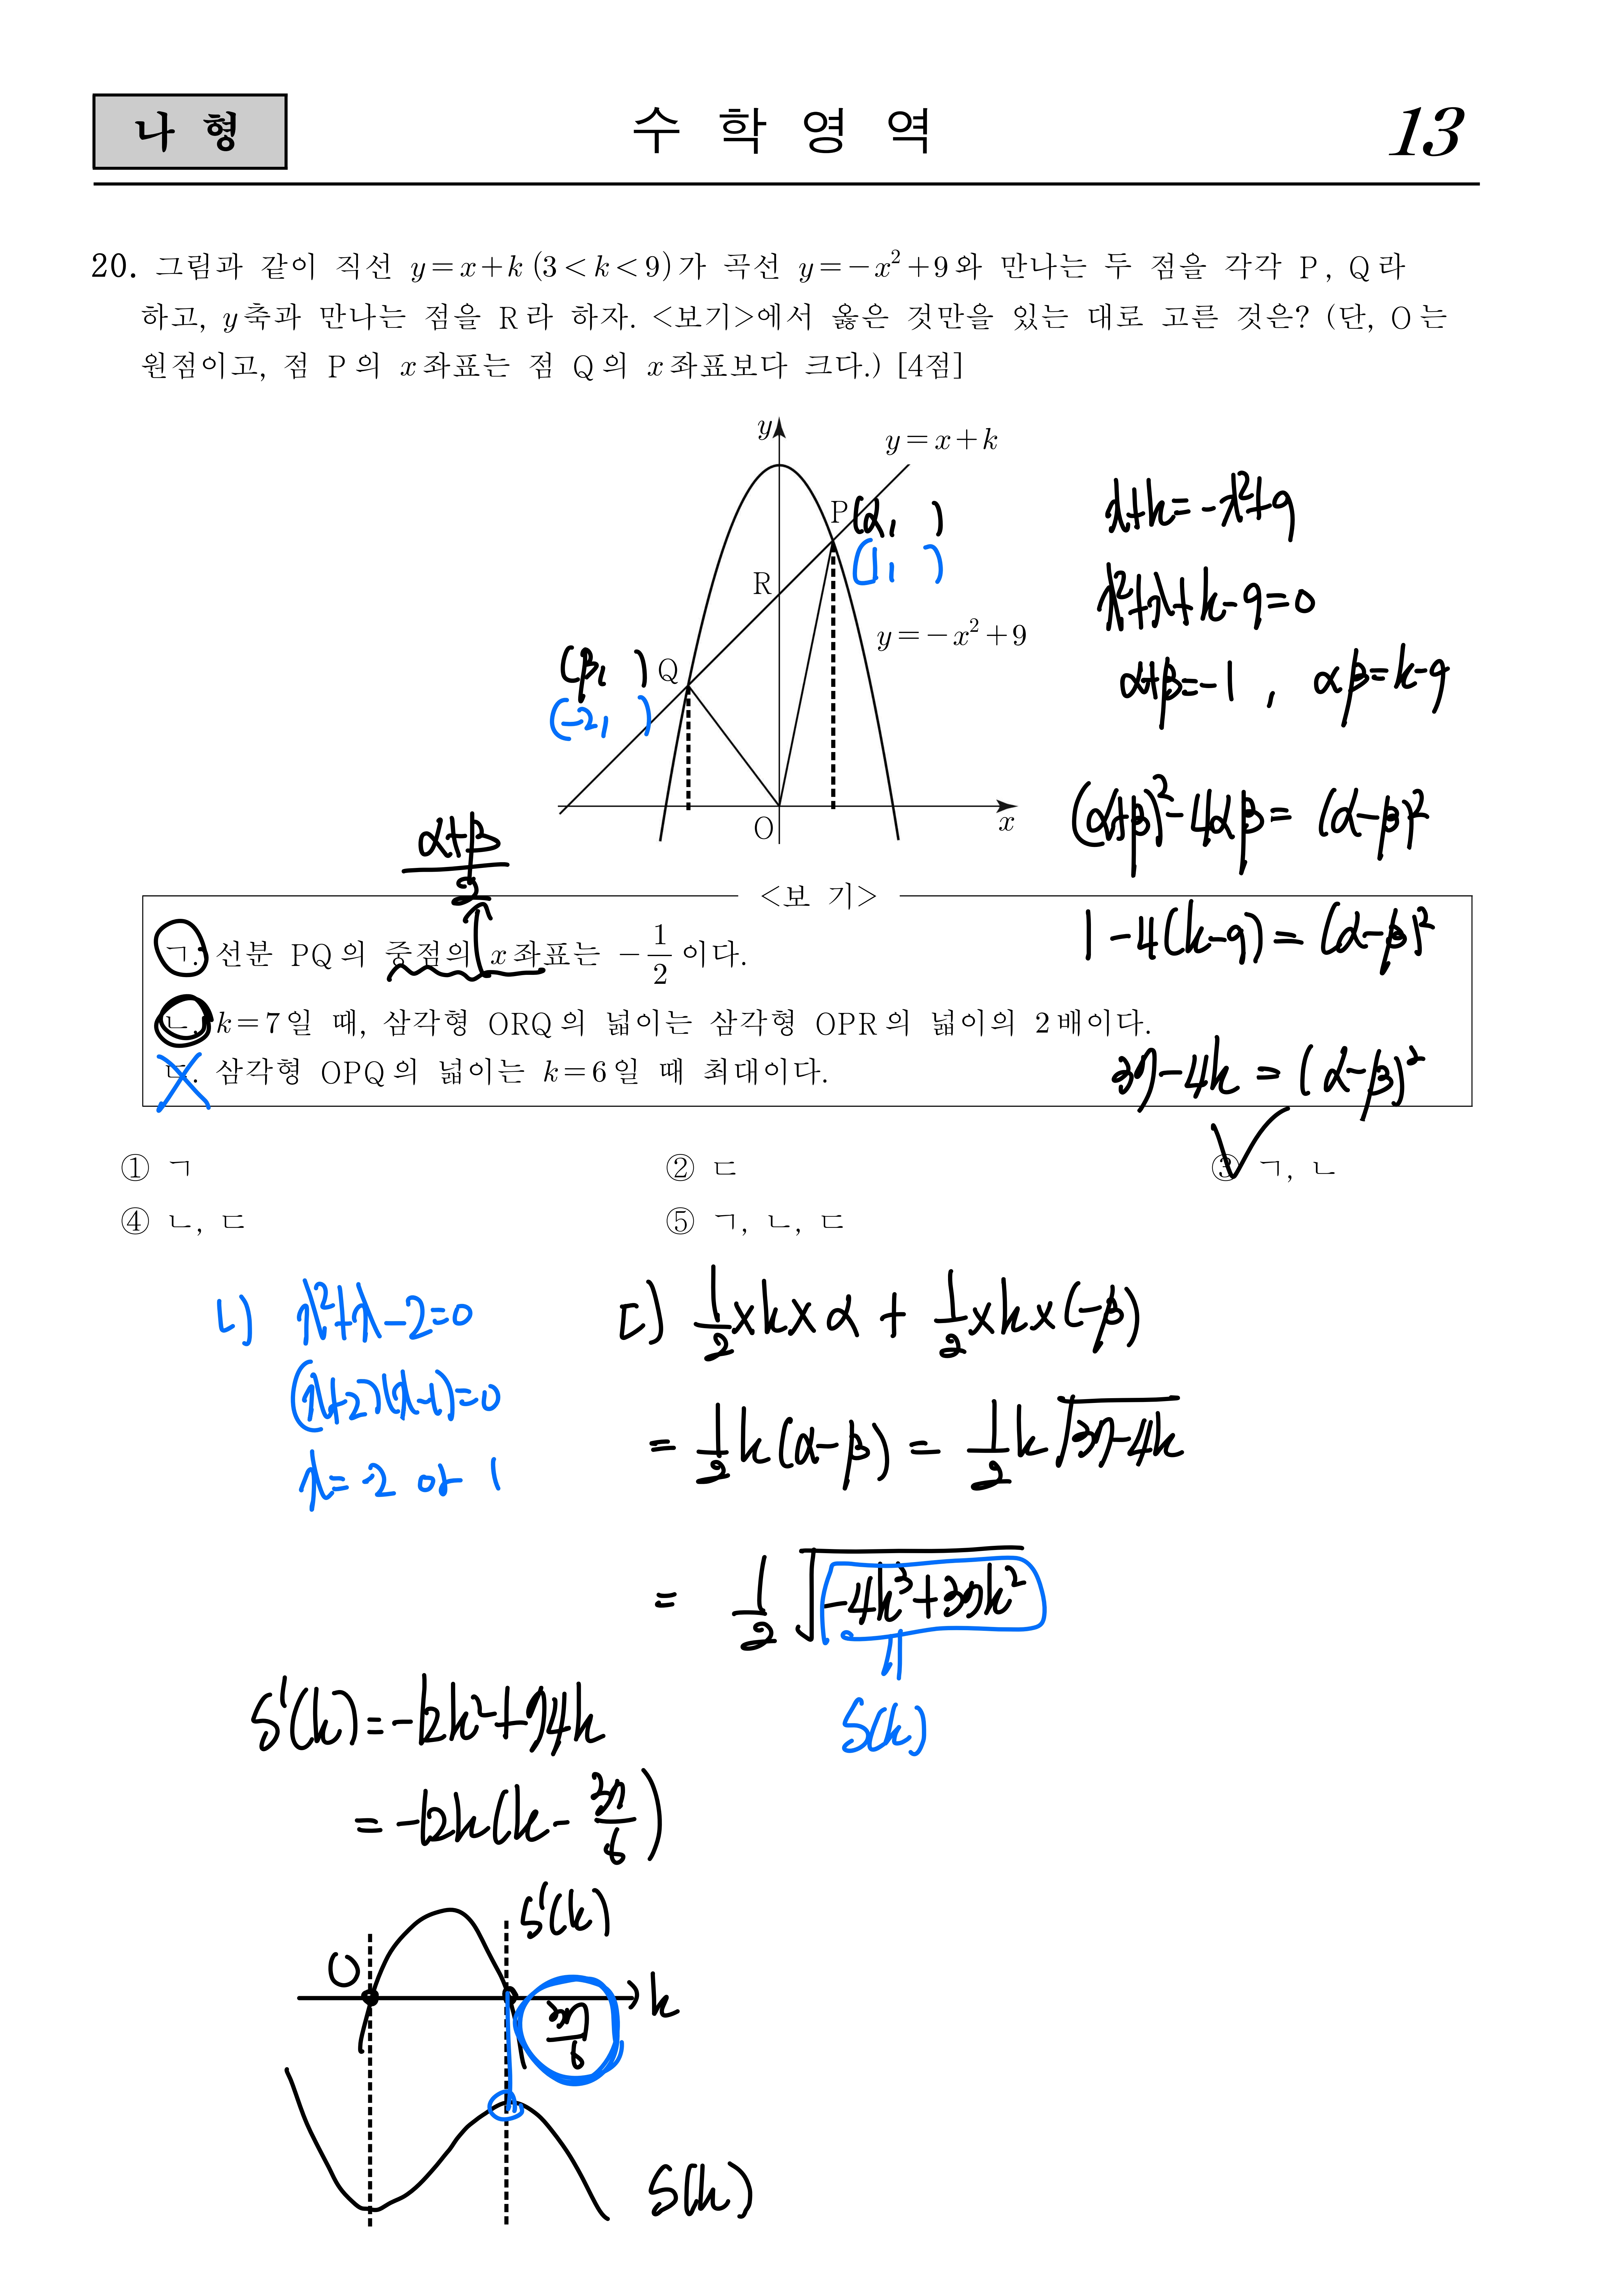 나 형
수 학 영 역
13
20. 그림과 같이 직선 y=x+k (3<k<9)가 곡선 y=-x²+9와 만나는 두 점을 각각 P, Q라
하고, y축과 만나는 점을 R라 하자. <보기>에서 옳은 것만을 있는 대로 고른 것은? (단, O는
원점이고, 점 P의 x좌표는 점 Q의 x좌표보다 크다.) [4점]
y
y=x+k
P(α, )
(1, )
R
y=-x²+9
(β, ) Q
(-2, )
O
x
x+k=-x²+9
x²+x+k-9=0
α+β=-1 , αβ=k-9
(α+β)²-4αβ=(α-β)²
1-4(k-9)=(α-β)²
37-4k=(α-β)²
(α+β)/2
<보 기>
ㄱ. 선분 PQ의 중점의 x좌표는 -1/2이다.
ㄴ. k=7일 때, 삼각형 ORQ의 넓이는 삼각형 OPR의 넓이의 2배이다.
ㄷ. 삼각형 OPQ의 넓이는 k=6일 때 최대이다.
① ㄱ ② ㄷ ③ ㄱ, ㄴ
④ ㄴ, ㄷ ⑤ ㄱ, ㄴ, ㄷ
ㄴ) x²+x-2=0
(x+2)(x-1)=0
x=-2 or 1
ㄷ) 1/2×k×α + 1/2×k×(-β)
= 1/2k(α-β) = 1/2k√(37-4k)
= 1/2√(-4k³+37k²)
S(k)
S'(k)=-12k²+74k
=-12k(k-37/6)
S'(k)
0
37/6
k
S(k)